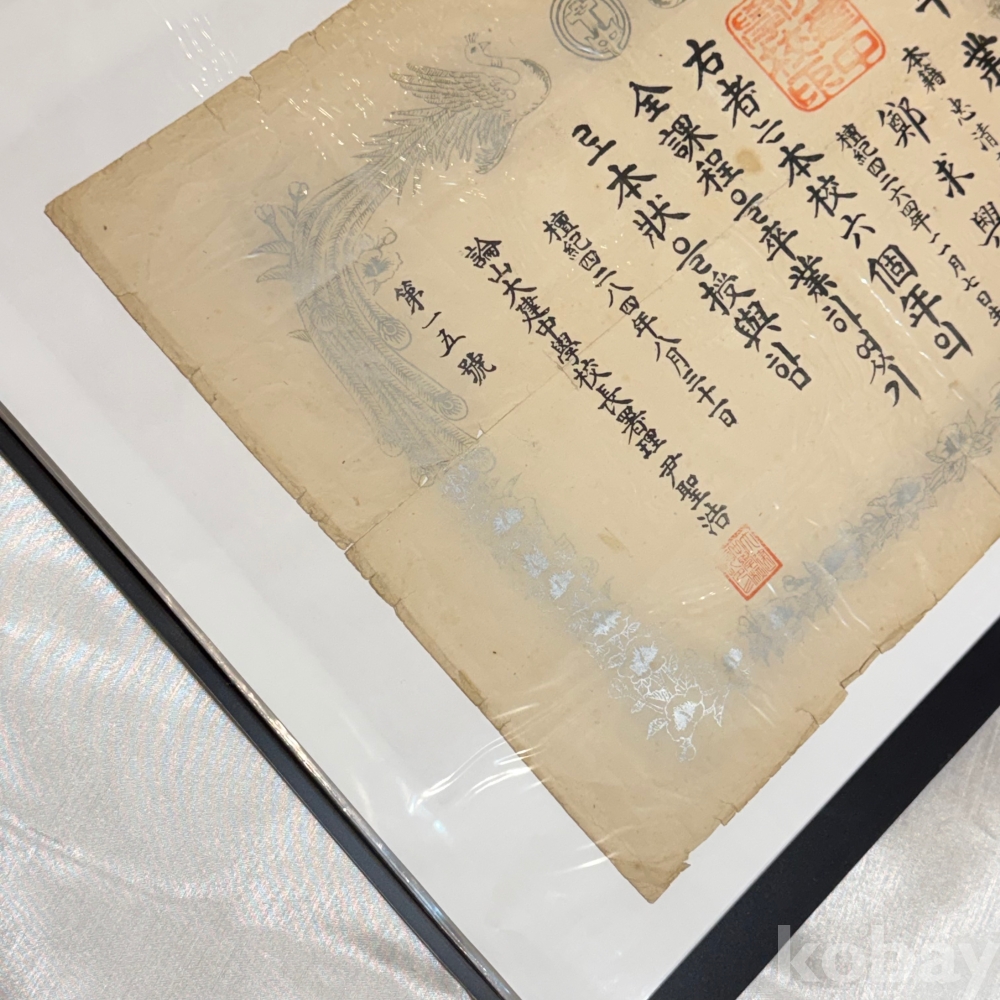 業
本籍 忠清
鄭求
檀紀四二六四年一一月七日生
右者는本校六個年의
全課程을卒業하였기
로本狀을授與함
檀紀四二八四年八月三十一日
論山大建中學校長署理 尹聖浩
第一五號
kobay